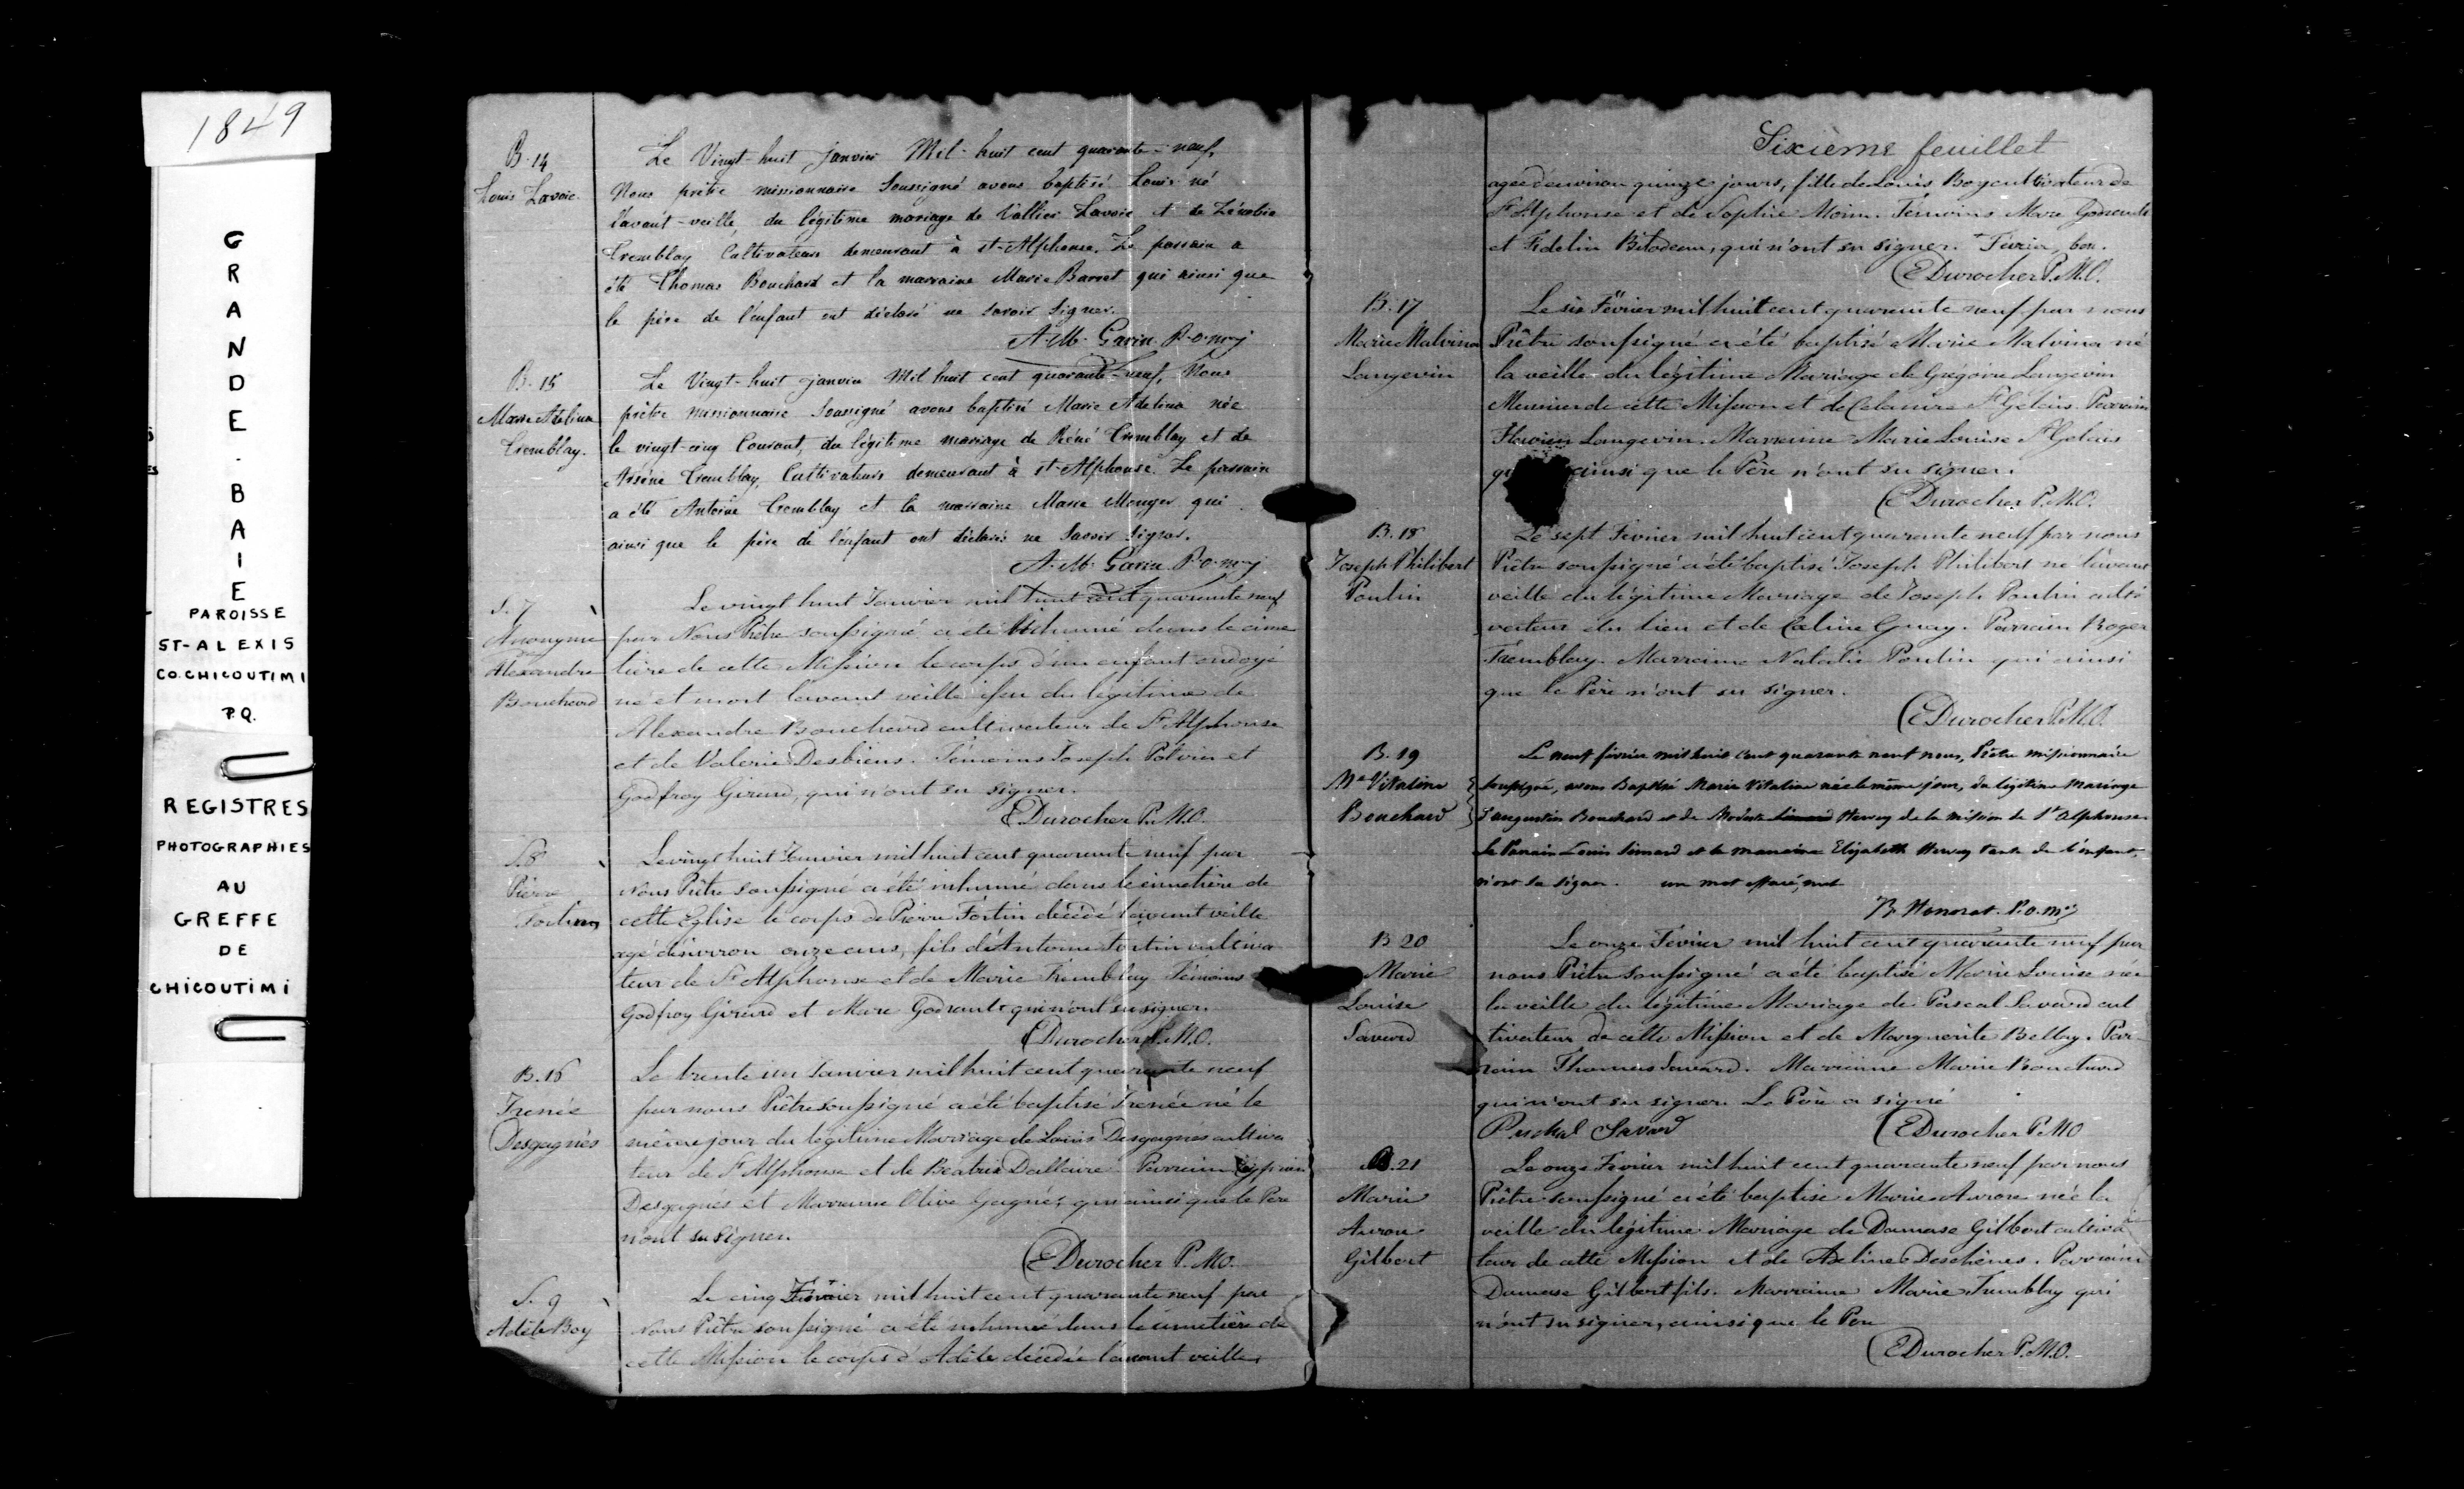 1849
GRANDE-BAIE
PAROISSE
ST-ALEXIS
CO. CHICOUTIMI
P.Q.
REGISTRES
PHOTOGRAPHIES
AU
GREFFE
DE
CHICOUTIMI
B. 14
Louis Lavoie.
Le Vingt-huit Janvier Mil-huit cent quarante-neuf,
Nous prêtre missionnaire Soussigné avons baptisé Louis né
l'avant-veille, du légitime mariage de Vallier Lavoie et de Zénobie
Tremblay Cultivateurs demeurant à St-Alphonse. Le parrain a
été Thomas Bouchard et la marraine Marie Barret qui ainsi que
le père de l'enfant ont déclaré ne savoir signer.
A. M. Garin P.o.m.j
B. 15
Marie Adelina
Tremblay.
Le Vingt-huit janvier Mil huit cent quarante-neuf, Nous
prêtre missionnaire Soussigné avons baptisé Marie Adelina née
le vingt-cinq Courant, du légitime mariage de Réné Tremblay et de
Arsène Tremblay, Cultivateurs demeurant à St-Alphonse. Le parrain
a été Antoine Tremblay et la marraine Marie Monger qui
ainsi que le père de l'enfant ont déclaré ne Savoir Signer.
A. M. Garin P.o.m.j
S. 7
Anonyme
Alexandre
Bouchard
Le vingt huit Janvier mil huit cent quarante neuf
par Nous Prêtre soussigné a été inhumé dans le cime
tière de cette Mission le corps d'un enfant ondoyé
né et mort l'avant veille issu du légitime de
Alexandre Bouchard cultivateur de St Alphonse
et de Valerie Desbiens. Témoins Joseph Potvin et
Godfroy Girard, qui n'ont su signer.
E Durocher P.M.O.
S. 8
Pierre
Fortin
Le vingt huit Janvier mil huit cent quarante neuf par
Nous Prêtre soussigné a été inhumé dans le cimetière de
cette Eglise le corps de Pierre Fortin décédé l'avant veille
agé d'environ onze ans, fils d'Antoine Fortin cultiva
teur de St Alphonse et de Marie Tremblay Témoins
Godfroy Girard et Marc Godreault qui n'ont su signer.
E Durocher P.M.O.
B. 16
Irenée
Desgagnés
Le trente un Janvier mil huit cent quarante neuf
par nous Prêtre soussigné a été baptisé Irenée né le
même jour du légitime Mariage de Louis Desgagnés cultiva
teur de St Alphonse et de Beatrix Dallaire. Parrain Cyprien
Desgagnés et Marraine Olive Gagné, qui ainsi que le Père
n'ont su signer.
E Durocher P.M.O.
S. 9
Adèle Boy
Le cinq Février mil huit cent quarante neuf par
Nous Prêtre soussigné a été inhumé dans le cimetière de
cette Mission le corps d'Adèle décédée l'avant veille,
Sixième feuillet
agée d'environ quinze jours, fille de Louis Boy cultivateur de
St Alphonse et de Sophie Morin. Témoins Marc Godreault
et Fidelin Bilodeau, qui n'ont su signer. + Février, bon.
E Durocher P.M.O.
B. 17
Marie Malvina
Langevin
Le six Février mil huit cent quarante neuf par nous
Prêtre soussigné a été baptisé Marie Malvina né
la veille du légitime Mariage de Grégoire Langevin
Meunier de cette Mission et de St Gelais. Parrain
Langevin. Marraine Marie Louise St Gelais
ainsi que le Père n'ont su signer.
E Durocher P.M.O.
B. 18
Joseph Philibert
Poulin
Le sept Février mil huit cent quarante neuf par nous
Prêtre soussigné a été baptisé Joseph Philibert né l'avant
veille du légitime Mariage de Joseph Poulin culti
vateur du lieu et de Celine Guay. Parrain Roger
Tremblay. Marraine Natalie Poulin qui ainsi
que le Père n'ont su signer.
E Durocher P.M.O.
B. 19
Me Vitaline
Bouchard
Le neuf février mil huit cent quarante neuf nous, Prêtre missionnaire
soussigné, avons Baptisé Marie Vitaline née le même jour, du légitime Mariage
d'augustin Bouchard et de Modeste Hervey de la mission de St alphonse.
Le Parrain Louis Simard et la marraine Elizabeth Hervey tante de l'enfant,
n'ont su signer. un mot effacé, nul
B. Honorat. P.o.m.j
B 20
Marie
Louise
Savard
Le onze Février mil huit cent quarante neuf par
nous Prêtre soussigné a été baptisé Marie Louise née
la veille du légitime Mariage de Pascal Savard cul
tivateur de cette Mission et de Marguerite Bellay. Par
rain Thomas Savard. Marraine Marie Bouchard
qui n'ont su signer. Le Père a signé
Paschal Savard
E Durocher P.M.O
B. 21
Marie
Aurore
Gilbert
Le onze Février mil huit cent quarante neuf par nous
Prêtre soussigné a été baptisé Marie Aurore née la
veille du légitime Mariage de Damase Gilbert cultiva
teur de cette Mission et de Adeline Deschènes. Parrain
Damase Gilbert fils. Marraine Marie Tremblay qui
n'ont su signer, ainsi que le Père
E Durocher P.M.O.